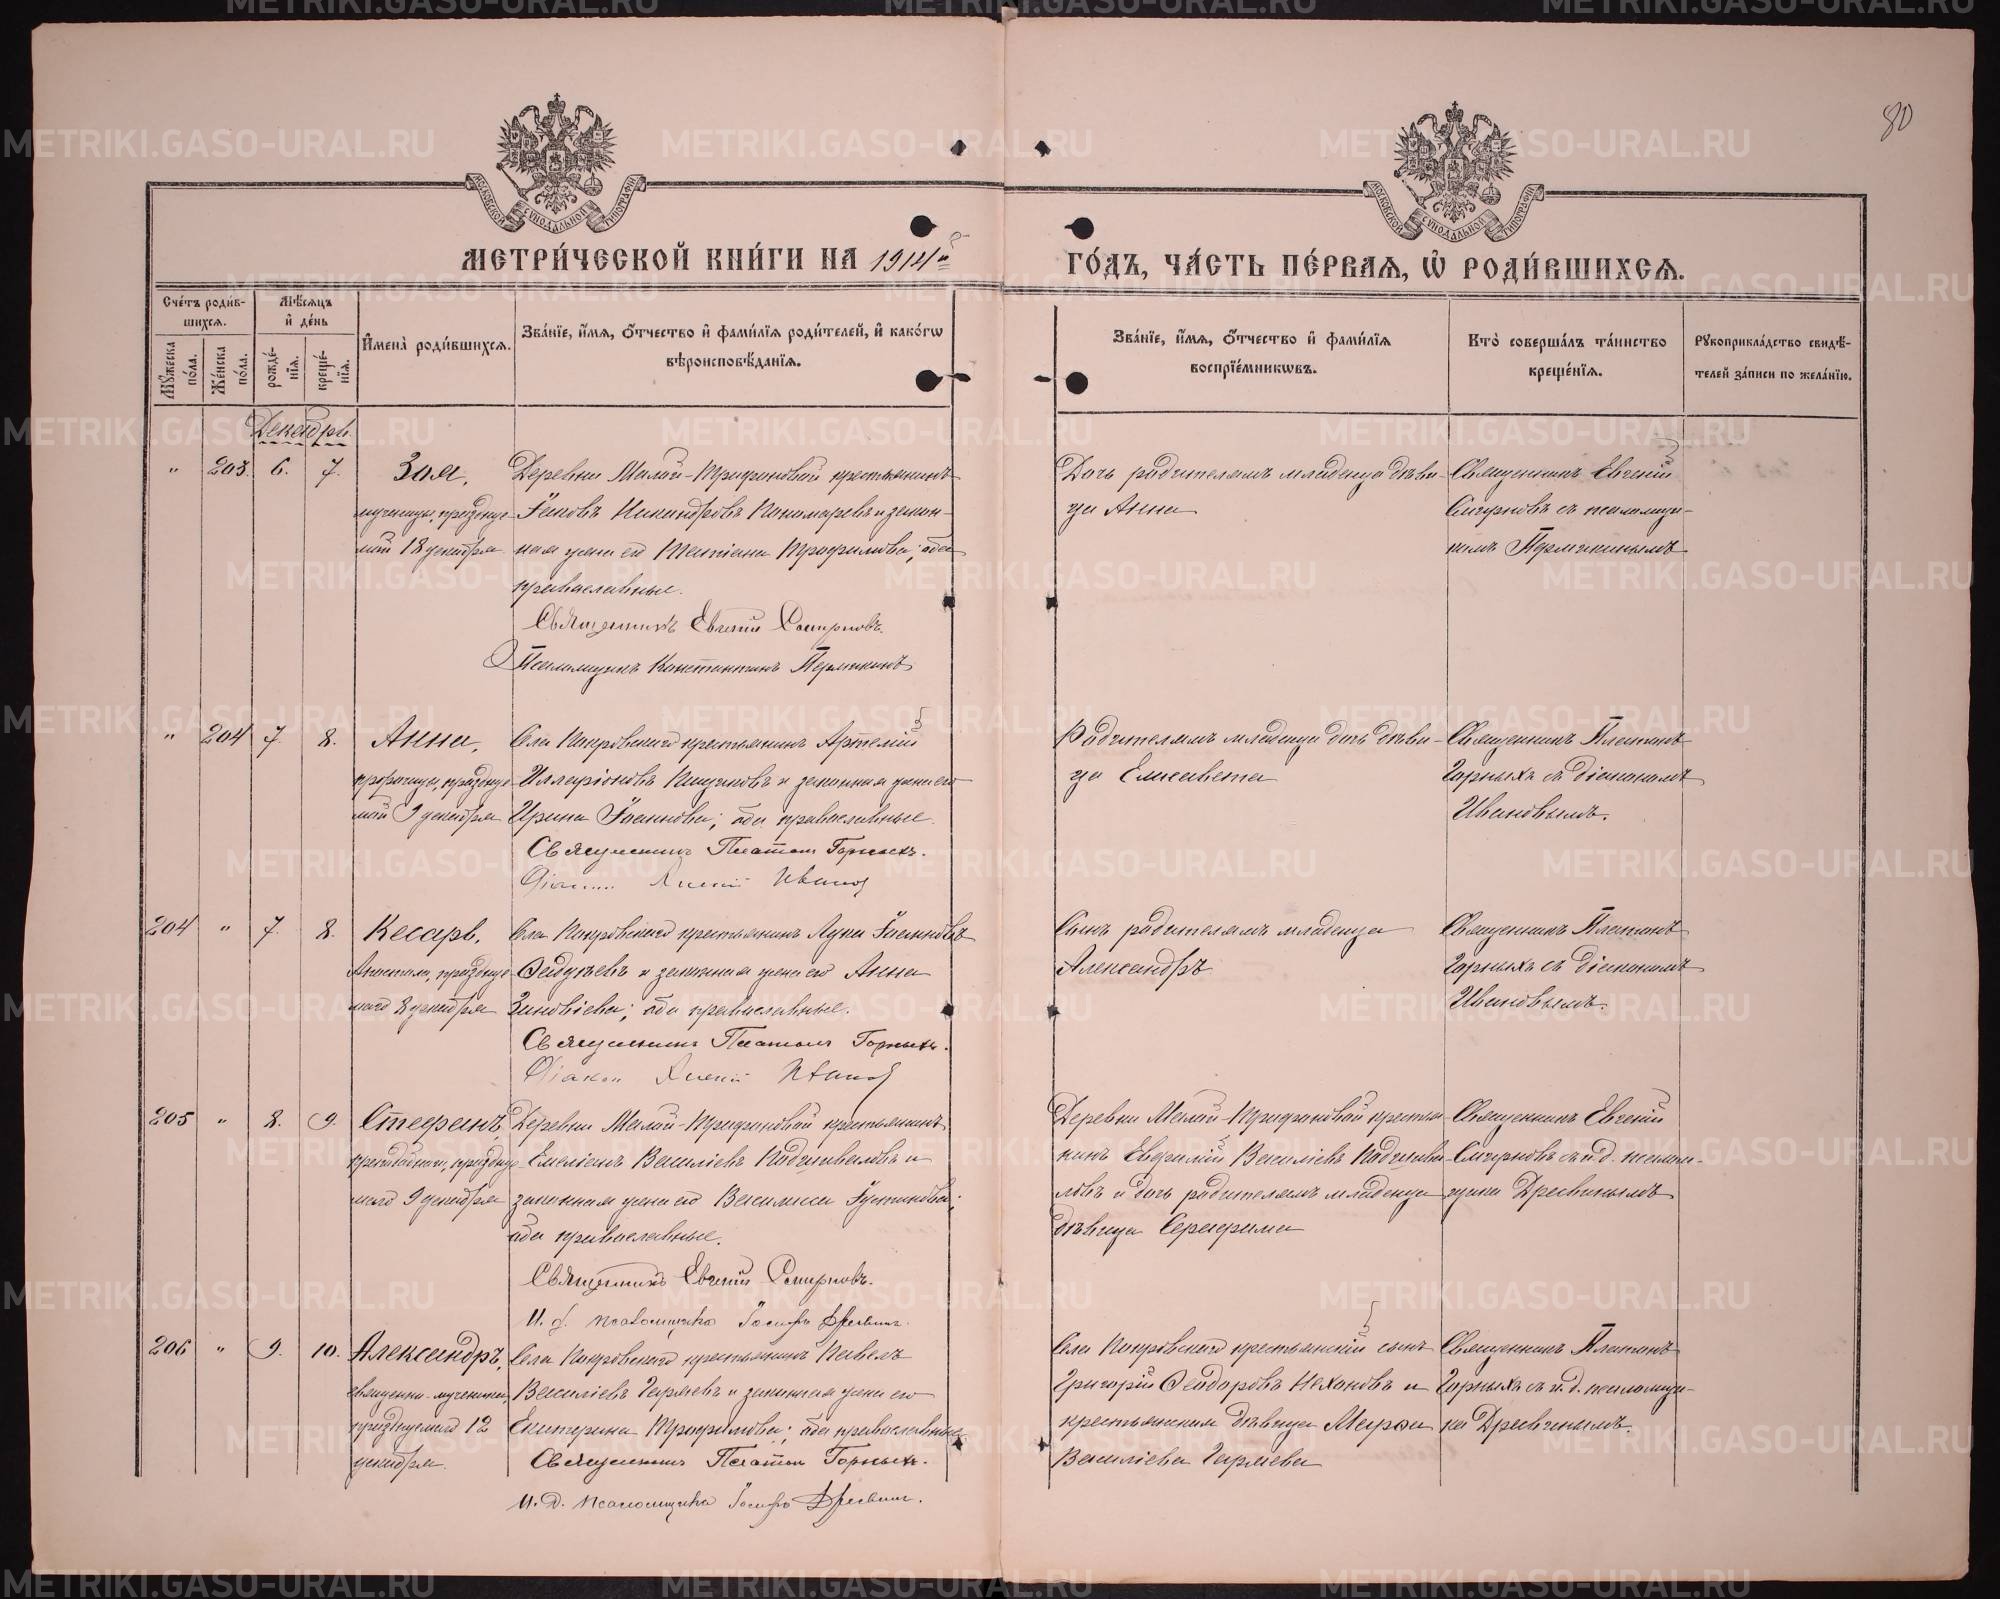 80
МОСКОВСКОЙ СѴНОДАЛЬНОЙ ТИПОГРАФІИ
МОСКОВСКОЙ СѴНОДАЛЬНОЙ ТИПОГРАФІИ
МЕТРИ́ЧЕСКОЙ КНИ́ГИ НА 1914й ГО́ДЪ, ЧА́СТЬ ПЕ́РВАЯ, Ѡ РОДИ́ВШИХСЯ.
Сче́тъ роди́в-
шихся.
Мѣ́сяцъ
и де́нь
Му́жеска по́ла.
Же́нска по́ла.
рожде́-
нїя.
креще́-
нїя.
Имена̀ роди́вшихся.
Зва́нїе, и́мя, о́тчество и фами́лїя роди́телей, и како́гѡ
вѣроисповѣ́данїя.
Зва́нїе, и́мя, о́тчество и фами́лїя
воспрїе́мникѡвъ.
Кто̀ соверша́лъ та́инство
креще́нїя.
Рукоприкла́дство свидѣ́-
телей за́писи по жела́нїю.
Декабрь
" 203. 6. 7. Зоя,
мученица, праздную-
мый 18 декабря
Деревни Малой-Трифоновой крестьянинъ
Іаковъ Никандровъ Пономаревъ и закон-
ная жена его Татіана Трофимова; оба
православные.
Священникъ Евгеній Смирновъ.
Псаломщикъ Константинъ Пермякинъ
Дочь родителямъ младенца дѣви-
ца Анна
Священникъ Евгеній
Смирновъ съ псаломщи-
комъ Пермякинымъ
" 204 7. 8. Анна,
пророчица, праздную-
мый 9 декабря
Села Покровскаго крестьянинъ Артемій
Илларіоновъ и законная жена его
Ирина Іоаннова; оба православные.
Священникъ Платонъ Горныхъ.
Діаконъ Иванов
Родителямъ младенца дочь дѣви-
ца Елисавета
Священникъ Платонъ
Горныхъ съ діакономъ
Ивановымъ.
204 " 7. 8. Кесарь,
Апостола, праздну-
маго 8 декабря
Села Покровскаго крестьянинъ Лука Іоанновъ
и законная жена его Анна
Зиновіева; оба православные.
Священникъ Платонъ Горныхъ.
Діакон Иванов
Сынъ родителямъ младенца
Александръ
Священникъ Платонъ
Горныхъ съ діакономъ
Ивановымъ.
205 " 8. 9. Стефанъ,
преподобнаго, праздну-
маго 9 декабря
Деревни Малой-Трифоновой крестьянинъ
Емеліанъ Василіевъ Подшиваловъ и
законная жена его Василиса Іустинова;
оба православные.
Священникъ Евгеній Смирновъ.
И. д. псаломщика Іосифъ Дресвинъ.
Деревни Малой-Трифоновой крестья-
нинъ Василіевъ Подшива-
ловъ и дочь родителямъ младенца
дѣвица Серафима
Священникъ Евгеній
Смирновъ съ и. д. псалом-
щика Дресвинымъ
206 " 9. 10. Александръ,
священно-мученика,
празднуемаго 12
декабря.
Села Покровскаго крестьянинъ Павелъ
Василіевъ Гаряевъ и законная жена его
Екатерина Трофимова; оба православные
Священникъ Платонъ Горныхъ.
И. д. псаломщика Іосифъ Дресвинъ.
Села Покровскаго крестьянскій сынъ
Григорій Ѳеодоровъ Нехоновъ и
крестьянская дѣвица
Василіева Гаряева
Священникъ Платонъ
Горныхъ съ и. д. псаломщи-
ка Дресвинымъ.